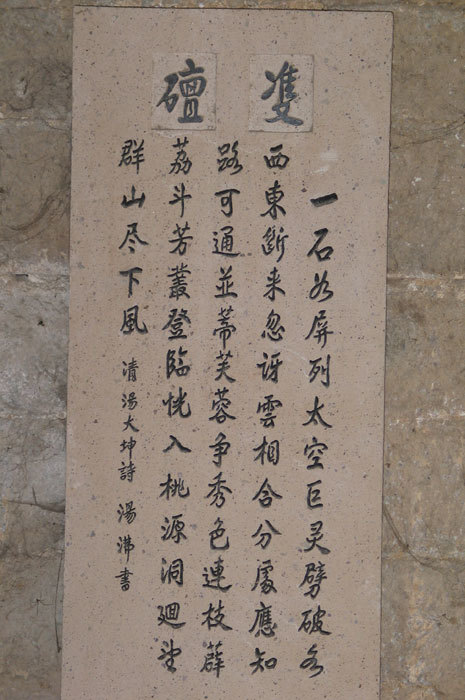 隻䃪
一石如屏列太空巨灵劈破各
西東斷来忽訝雲相合分處應知
路可通並蒂芙蓉争秀色連枝薜
荔斗芳叢登臨恍入桃源洞廻望
群山尽下風 清湯大坤詩 湯沸書